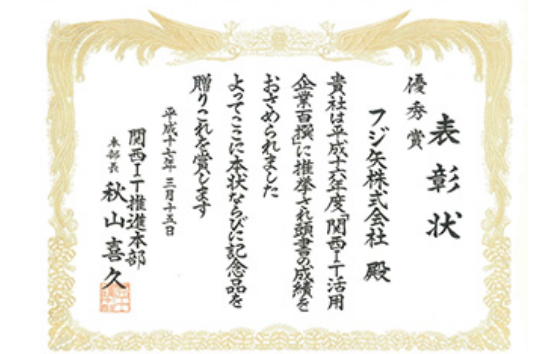 表彰状
優秀賞
フジ矢株式会社 殿
貴社は平成十六年度「関西IT活用
企業百撰」に推挙され頭書の成績を
おさめられました
よってここに本状ならびに記念品を
贈りこれを賞します
平成十七年三月十五日
関西IT推進本部
本部長 秋山喜久